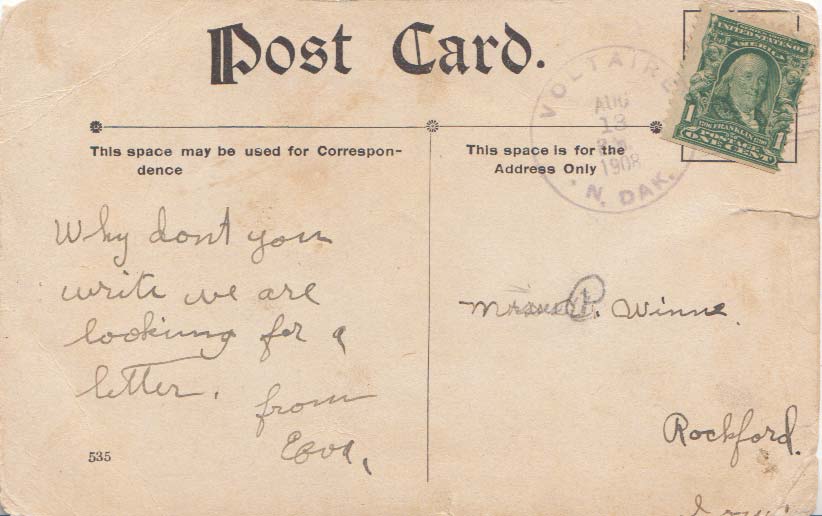 Post Card.
VOLTAIRE
AUG
13
P.M.
1908
N. DAK.
UNITED STATES OF
AMERICA
1 FRANKLIN 1
POSTAGE
ONE CENT
This space may be used for Correspon-
dence
This space is for the
Address Only
Why dont you
write we are
looking for a
letter.
from
P. Winne.
Rockford.
535